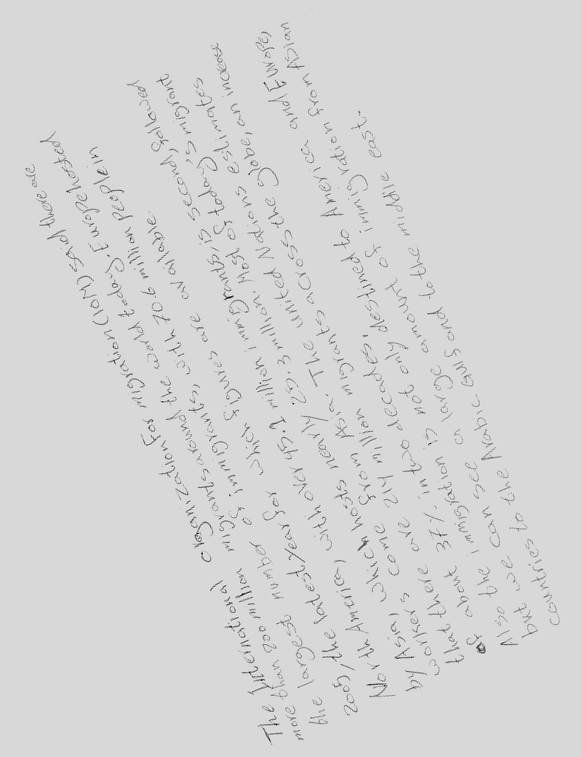 The International organization For migration (IOM) said there are
more than 200 million migrants around the world today. Europe hosted
the largest number of immigrants, with 70.6 million people in
2005, the latest year for which figures are available.
North America, with over 45.1 million immigrants, is second, followed
by Asia, which hosts nearly 25.3 million. Most of today's migrant
workers come from Asia. The United Nations estimates
that there are 214 million migrants across the globe, an increase
of about 37% in two decades.
Also the immigration is not only destined to America and Europe,
but we can see a large amount of immigration from Asian
countries to the Arabic Gulf and to the middle east.